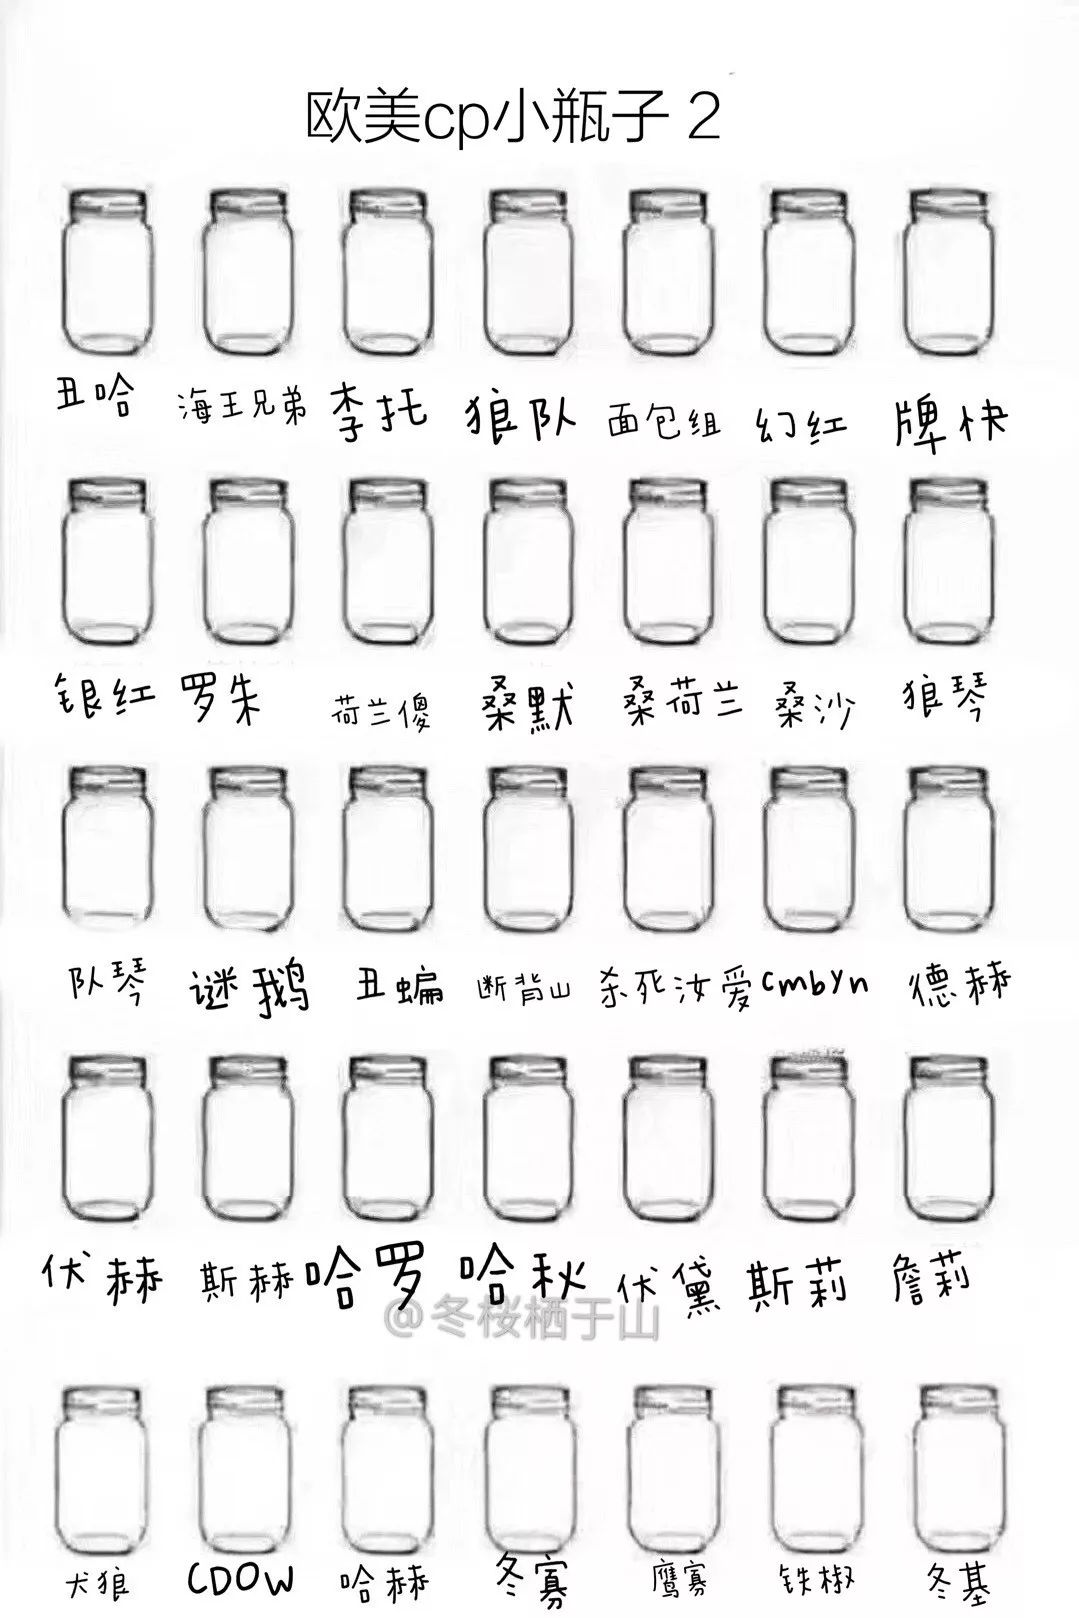 欧美cp小瓶子 2
丑哈 海王兄弟 李托 狼队 面包组 幻红 牌快
银红 罗朱 荷兰傻 桑默 桑荷兰 桑沙 狼琴
队琴 谜鹅 丑蝙 断背山 杀死汝爱 cmbyn 德赫
伏赫 斯赫 哈罗 哈秋 伏黛 斯莉 詹莉
@冬桜栖于山
犬狼 CDOW 哈赫 冬寡 鹰寡 铁椒 冬基